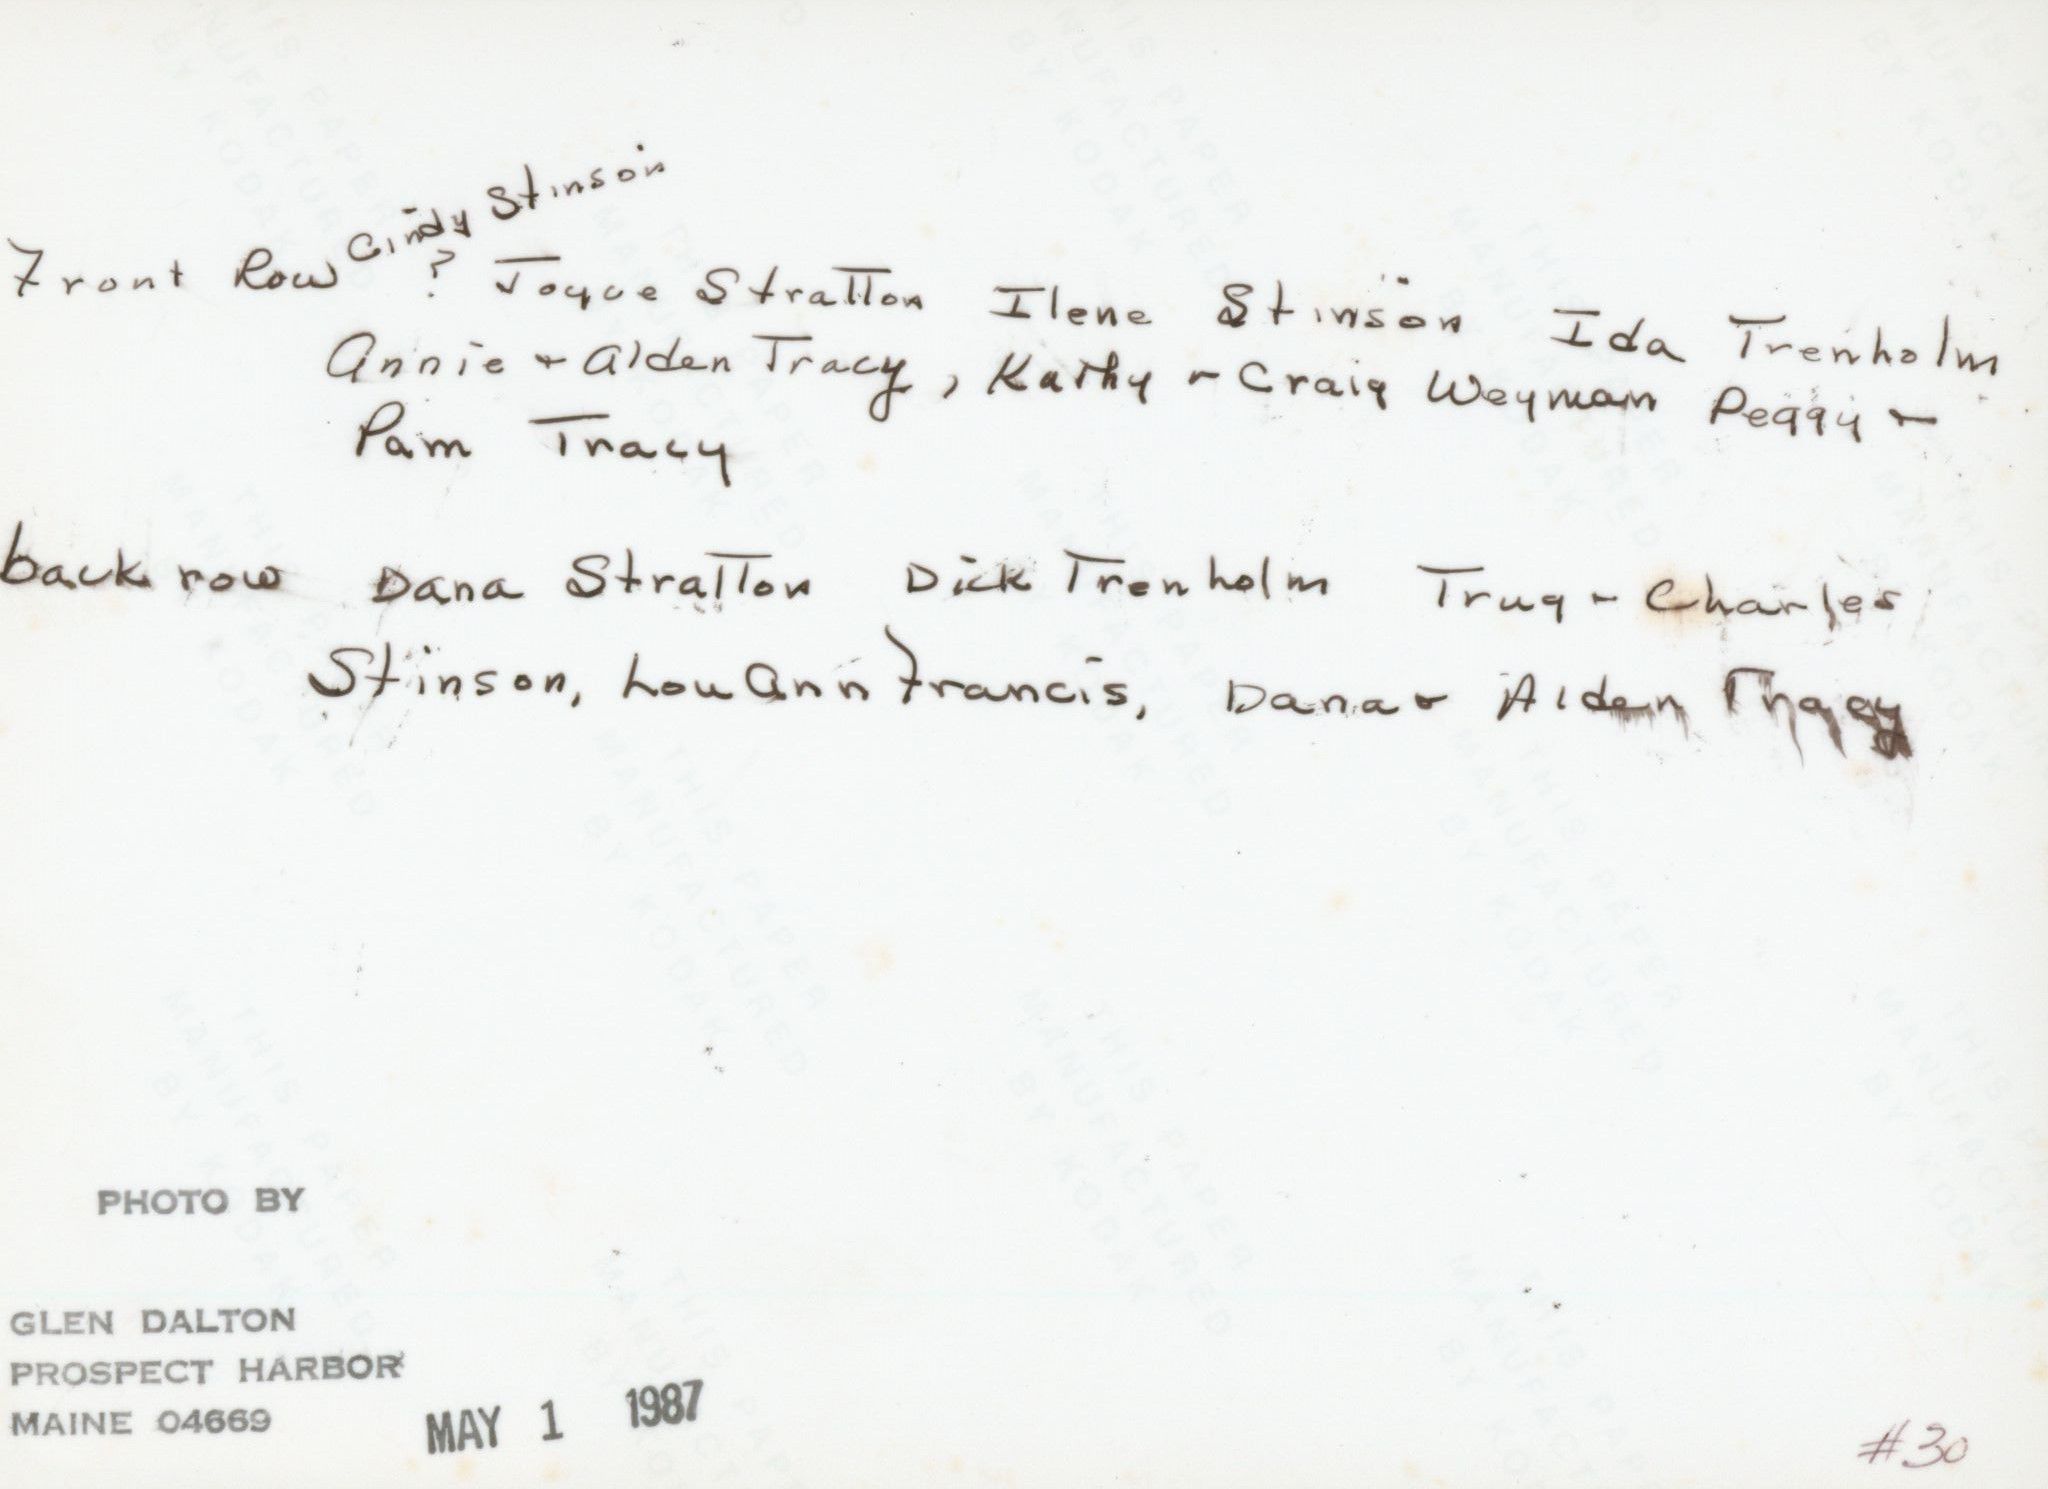 Cindy Stinson
Front Row ? Joyce Stratton Ilene Stinson Ida Trenholm
Annie + Alden Tracy, Kathy + Craig Weyman Peggy +
Pam Tracy
back row Dana Stratton Dick Trenholm Trug + Charles
Stinson, Lou Ann Francis, Dana + Alden Tracy
PHOTO BY
GLEN DALTON
PROSPECT HARBOR
MAINE 04669
MAY 1 1987
#30
THIS PAPER
MANUFACTURED
BY KODAK